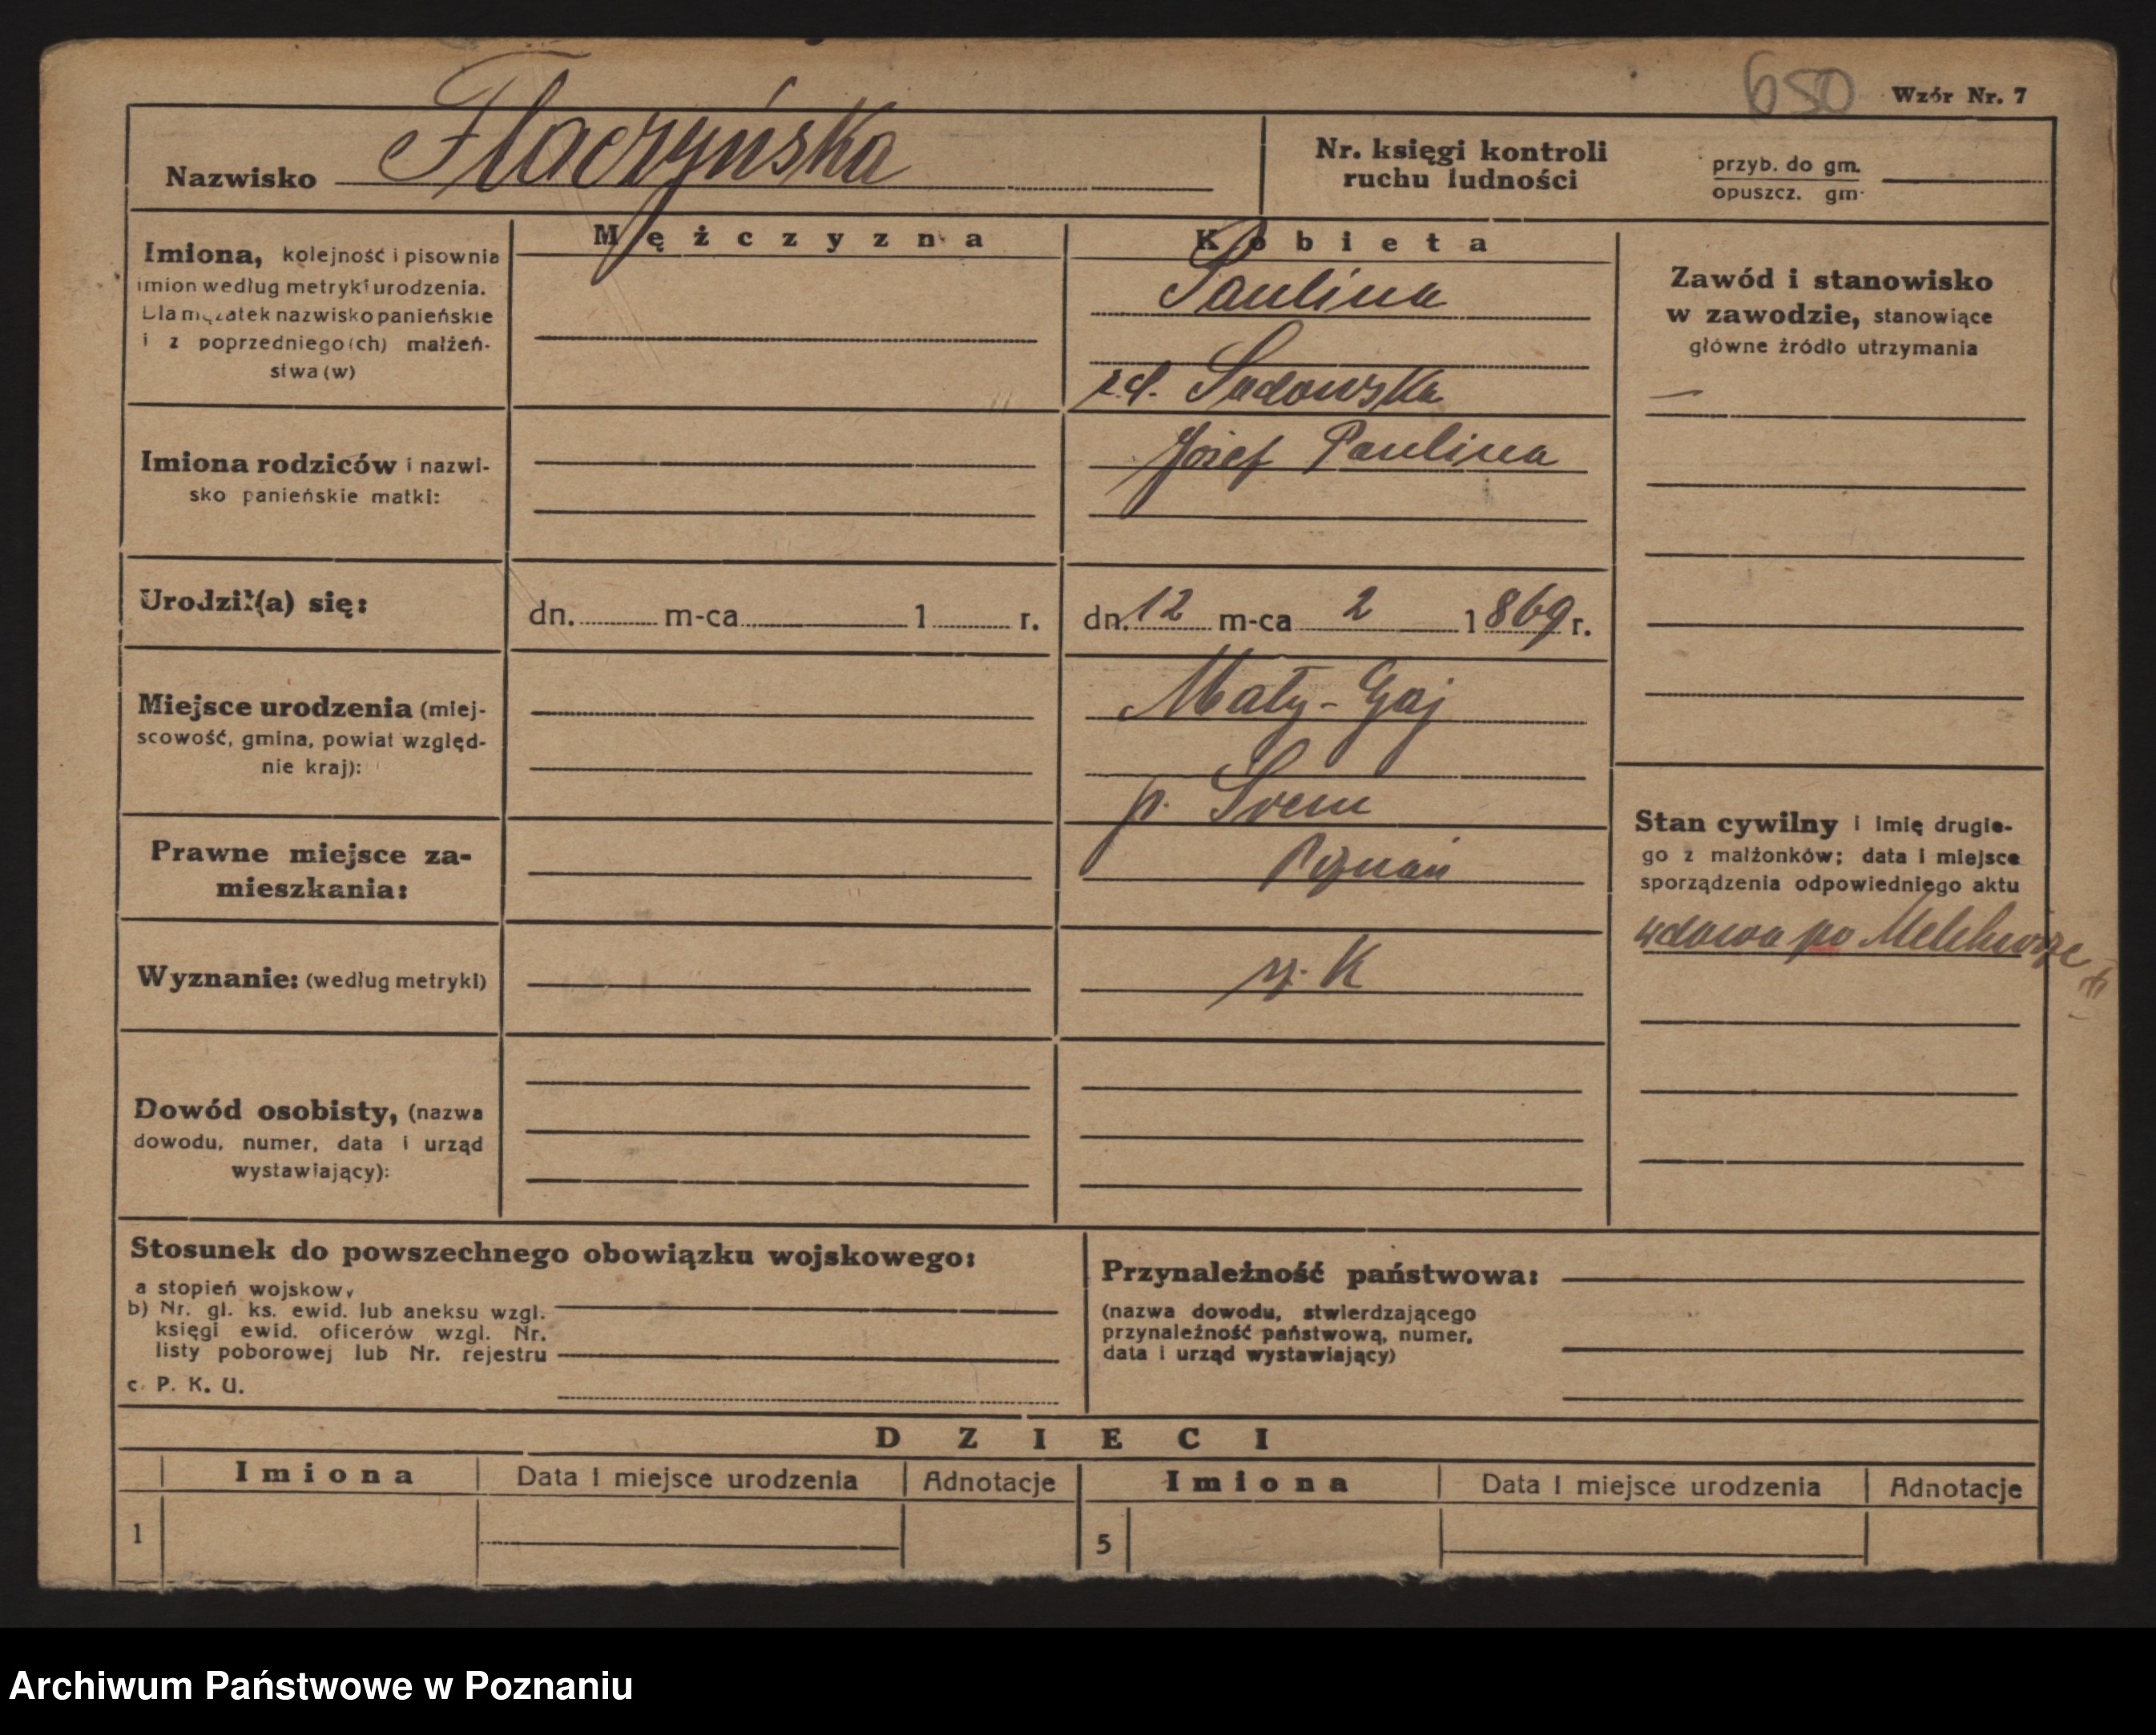 650 Wzór Nr. 7
Nazwisko Flaczyńska
Nr. księgi kontroli
ruchu ludności
przyb. do gm.
opuszcz. gm.
Mężczyzna
Kobieta
Imiona, kolejność i pisownia
imion według metryki urodzenia.
Dla mężatek nazwisko panieńskie
i z poprzedniego(ch) małżeń-
stwa(w)
Paulina
z d. Sadowska
Zawód i stanowisko
w zawodzie, stanowiące
główne źródło utrzymania
—
Imiona rodziców i nazwi-
sko panieńskie matki:
Józef Paulina
Urodził(a) się:
dn. m-ca 1 r.
dn. 12 m-ca 2 1869 r.
Miejsce urodzenia (miej-
scowość, gmina, powiat względ-
nie kraj):
Mały-Gaj
p. Śrem
Prawne miejsce za-
mieszkania:
Poznań
Stan cywilny i imię drugie-
go z małżonków; data i miejsce
sporządzenia odpowiedniego aktu
wdowa po Melchiorze
Wyznanie: (według metryki)
rz. K
Dowód osobisty, (nazwa
dowodu, numer, data i urząd
wystawiający):
Stosunek do powszechnego obowiązku wojskowego:
a stopień wojskowy
b) Nr. gl. ks. ewid. lub aneksu wzgl.
księgi ewid. oficerów wzgl. Nr.
listy poborowej lub Nr. rejestru
c. P. K. U.
Przynależność państwowa:
(nazwa dowodu, stwierdzającego
przynależność państwową, numer,
data i urząd wystawiający)
DZIECI
Imiona Data i miejsce urodzenia Adnotacje Imiona Data i miejsce urodzenia Adnotacje
1 5
Archiwum Państwowe w Poznaniu